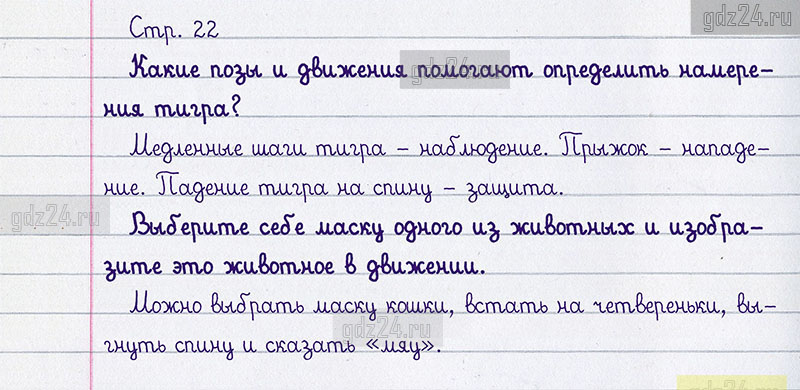 gdz24.ru
Стр. 22
Какие позы и движения помогают определить намере-
ния тигра?
gdz24.ru
Медленные шаги тигра – наблюдение. Прыжок – нападе-
ние. Падение тигра на спину – защита.
gdz24.ru
Выберите себе маску одного из животных и изобра-
зите это животное в движении.
Можно выбрать маску кошки, встать на четвереньки, вы-
гнуть спину и сказать «мяу».
gdz24.ru